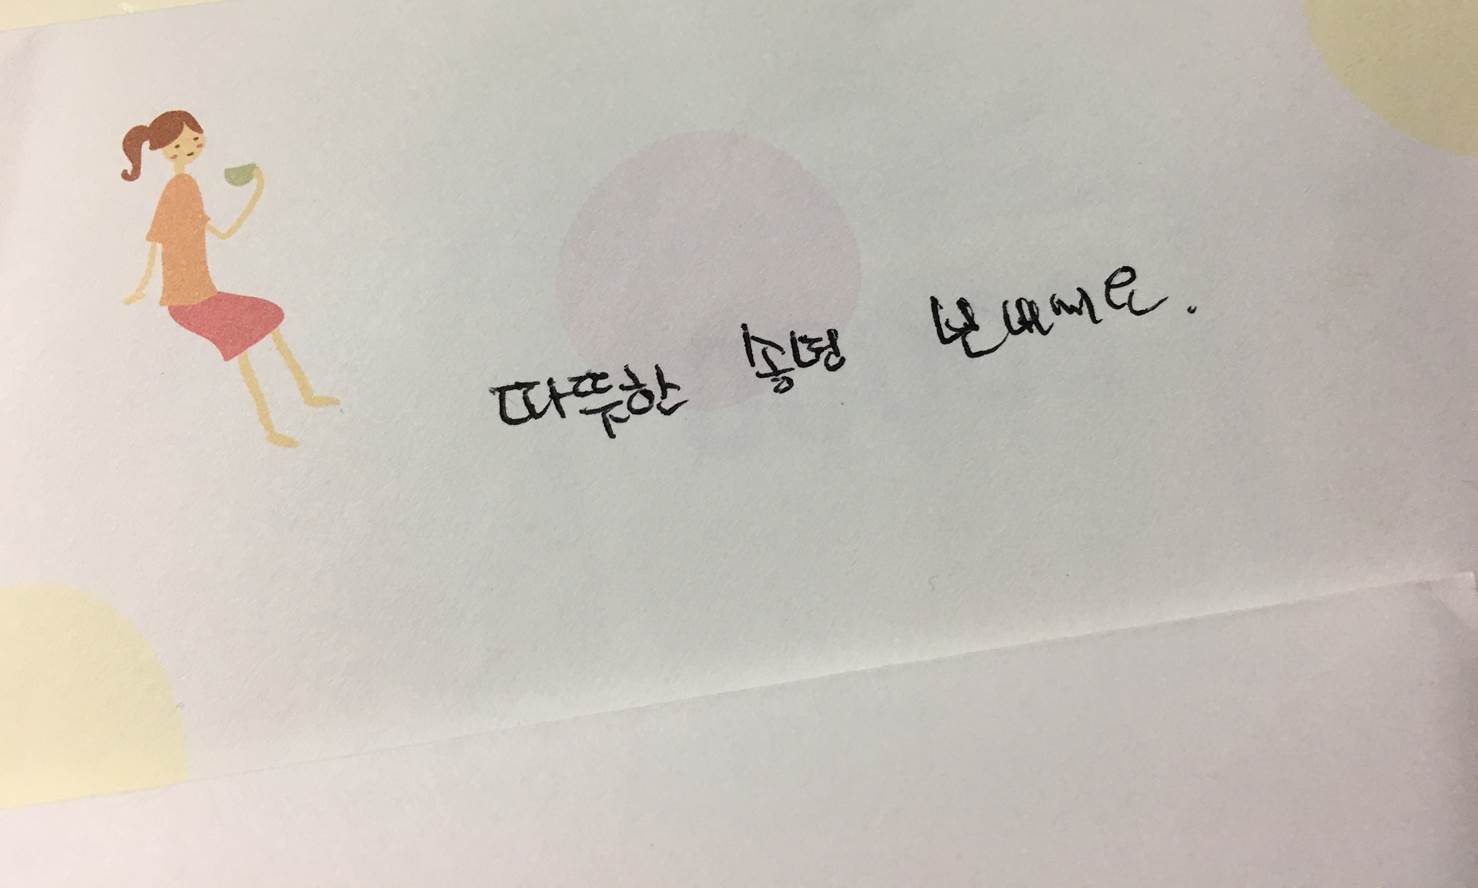 따뚜한 송년 보내세요.